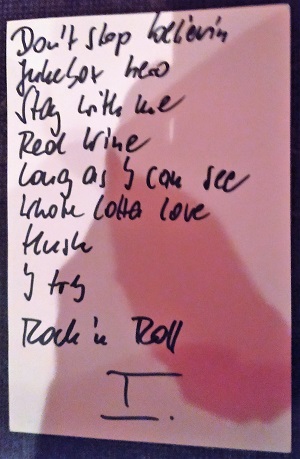 Don't stop believin
Jukebox hero
Stay with me
Red Wine
Long as I can see
Whole Lotta Love
Hush
I try
Rock 'n Roll
I.